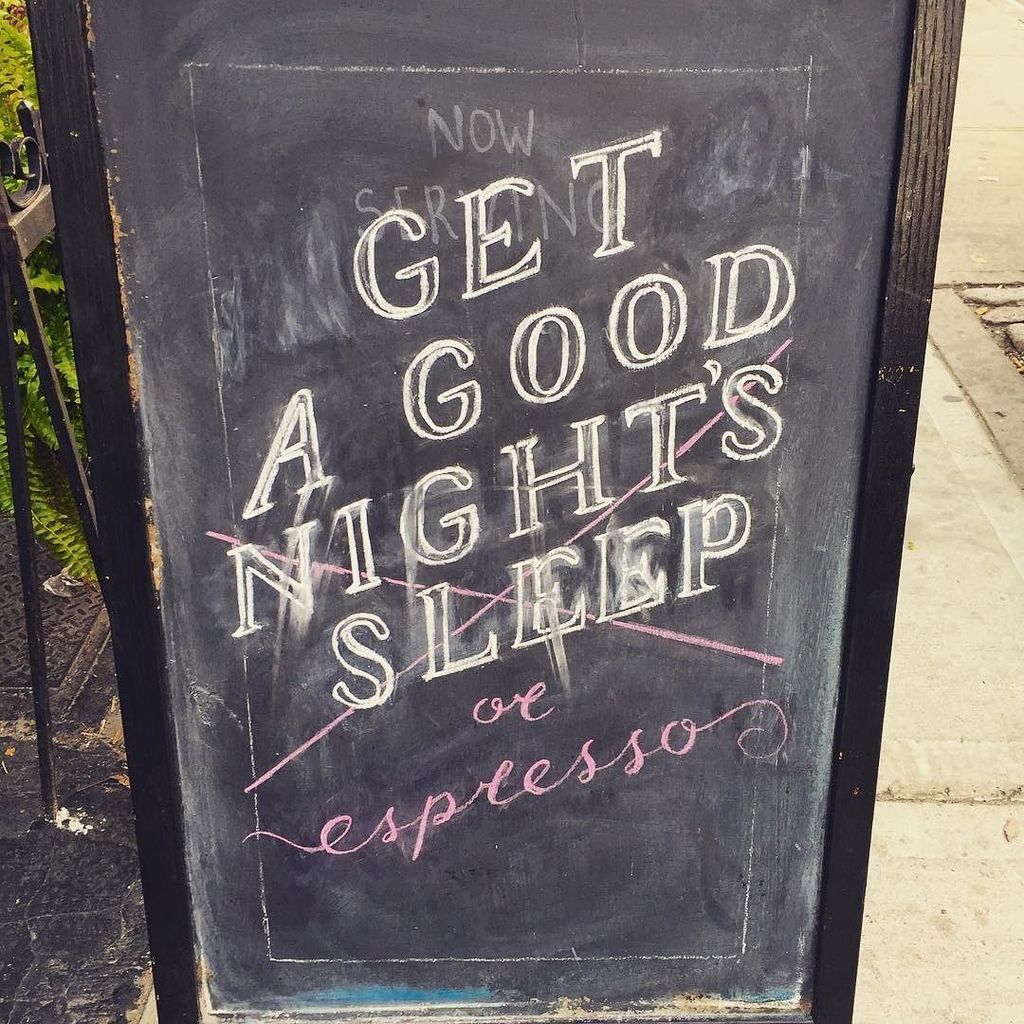 NOW
SERVING
GET
A GOOD
NIGHT'S
SLEEP
or
espresso